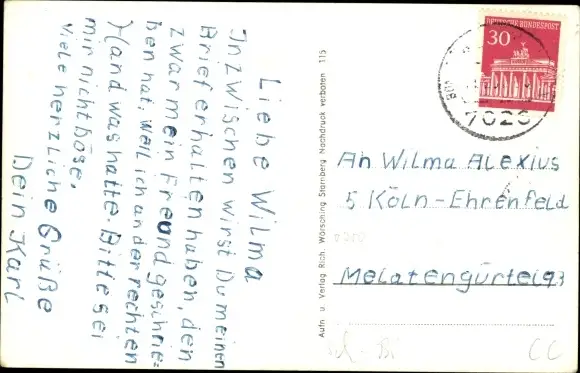 Liebe Wilma
Inzwischen wirst Du meinen
Brief erhalten haben, den
zwar mein Freund geschrie-
ben hat, weil ich an der rechten
Hand was hatte. Bitte sei
mir nicht böse.
Viele herzliche Grüße
Dein Karl
Aufn u. Verlag Rich. Wörsching Starnberg Nachdruck verboten 115
DEUTSCHE BUNDESPOST
30
7026
An Wilma Alexius
5 Köln-Ehrenfeld
Melatengürtel 93
CC